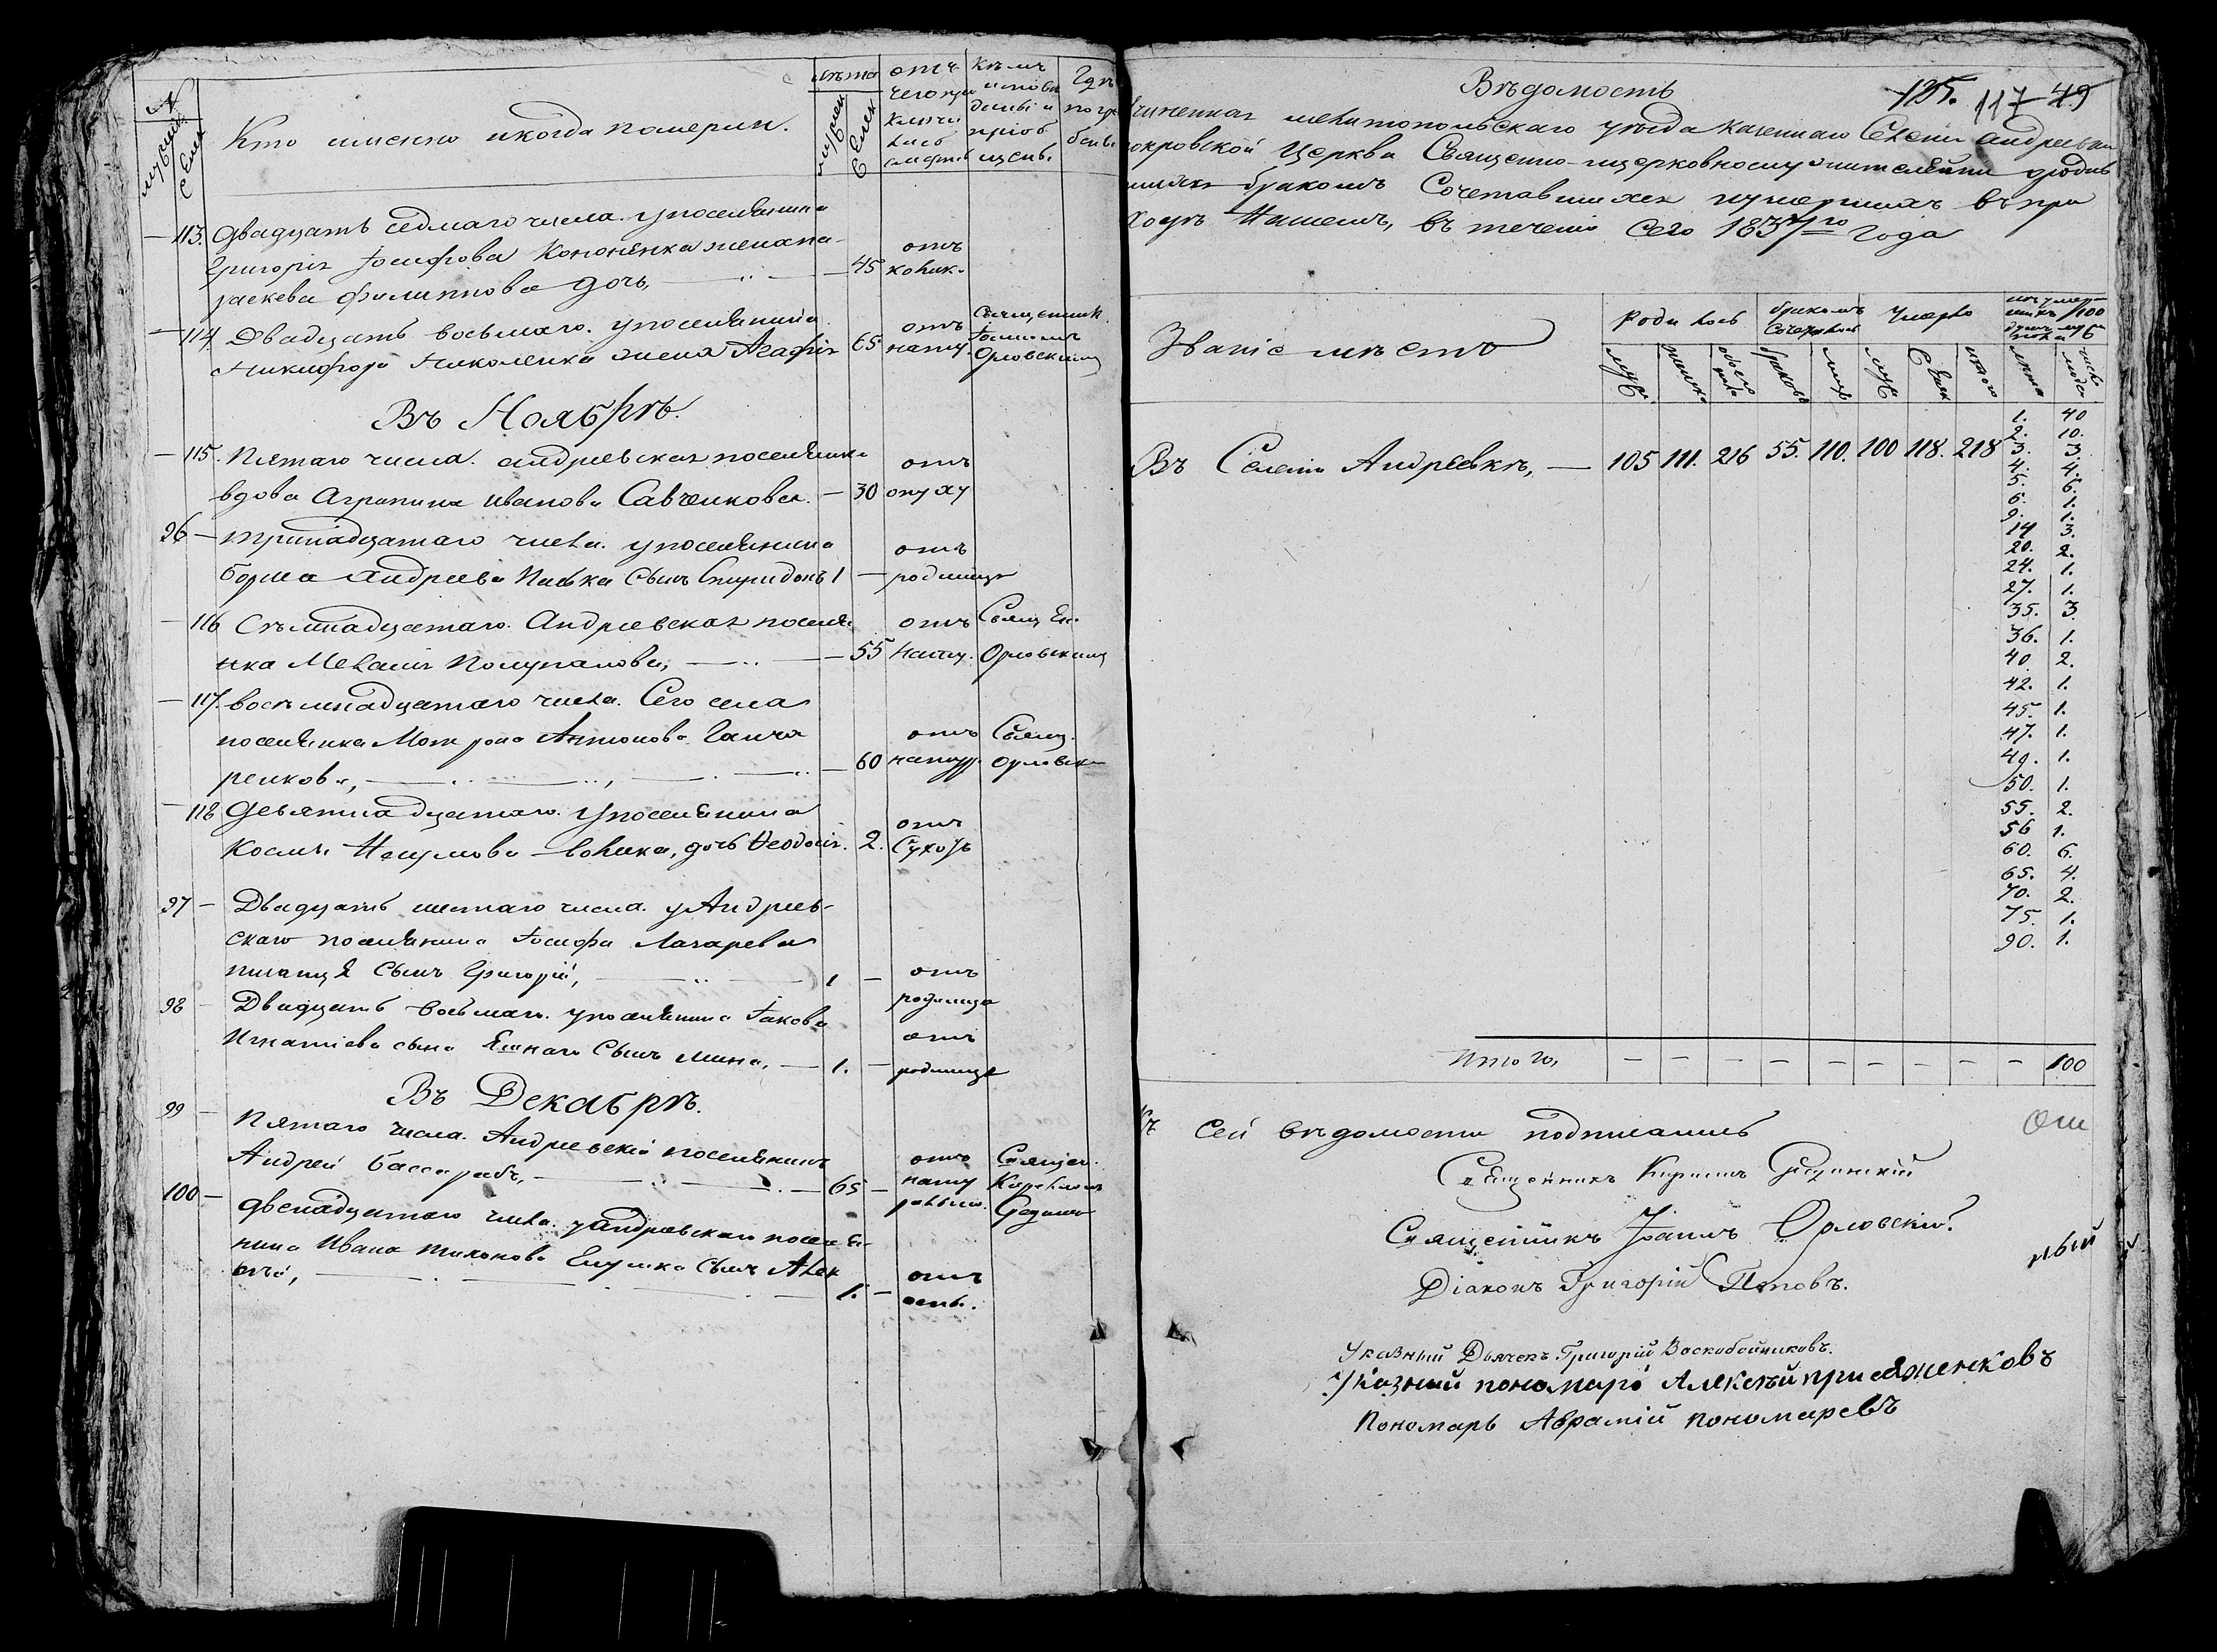 №
мужеск
женск
Кто именно и когда померли.
лѣта
мужеск
женск
отъ
чего при
ключи
лась
смерть
Кѣмъ
исповѣ
даны и
пріоб
щены
Гдѣ
погре
бены
113. Двадцать седмаго числа. у поселянина
Григорія Іосифова Кононенка жена Па-
раскева Филиппова дочь, 45 отъ колик.
114. Двадцать восьмаго. у поселянина
Никифора Николенка жена Агафія 65 отъ нату. Священник. Іоанномъ Орловскимъ
Въ Ноябрѣ.
115. Пятаго числа. андреевская поселянка
вдова Агрипина Иванова Савченкова. — 30 отъ опуху
96 — тринадцатаго числа. у поселянина
сынъ Спиридонъ 1 — отъ родимца
116 Семнадцатаго. Андреевская поселян-
ка Меланія Полупанова, — 55 отъ нату. Священ. Орловскимъ
117. восемнадцатаго числа. Сего села
поселянка Мотрона Антонова Ганча
ренкова, — 60 отъ натур. Священ. Орловским
118 девятнадцатаго. у поселянина
Космы Наумова дочь Ѳеодосія. 2. отъ Сухотъ
97 — Двадцать шестаго числа. у Андреев-
скаго поселянина Іосифа Лазарева
сынъ Григорій, 1 — отъ родимца
98 — Двадцать восьмаго. у поселянина Іакова
Игнатіева сына сынъ Мина, — 1. — отъ родимца
Въ Декабрѣ.
99 — Пятаго числа. Андреевскій поселянинъ
Андрей Бассарабъ, — 65 — отъ нату ральной. Священ. Кирилом
100 — двенадцатаго числа. у Андреевскаго поселя-
нина Ивана Тихонова сынъ Алек
сѣй, 1. — отъ оспы.
Вѣдомость
125. 117 49
Учиненная мелитопольскаго уѣзда казеннаго Селенія андреевки
покровской Церкви Священно-ицерковнослужителями о родив
шихся бракомъ Сочетавшихся и умершихъ въ при
ходѣ Нашемъ, въ теченіи Сего 1837го Года
Званіе мѣстъ
Родилось
бракомъ Сочеталось
Умерло
муж.
женск.
обоего пола
браковъ
лицъ
муж
женск
итого
лѣта
число людей
Въ Селеніи Андреевкѣ, — 105 111. 216 55. 110. 100 118. 218
1. 40
2. 10.
3. 3.
4. 4.
5. 6.
6. 1.
9. 1.
14 3.
20. 2.
24. 1.
27. 1.
35. 3.
36. 1.
40. 2.
42. 1.
45. 1.
47. 1.
49. 1.
50. 1.
55. 2.
56 1.
60. 6.
65. 4.
70. 2.
75. 1.
90. 1.
Итого, — — — — — — — — — 100
Къ Сей вѣдомости подписались
Священникъ Кирилъ
Священникъ Іоаннъ Орловскій.
Діаконъ Григорій Поповъ.
Указный Дьячекъ Григорій Воскобойниковъ.
Указный пономарь Алексѣй присяженковъ
Пономарь Аврамій Пономаревъ